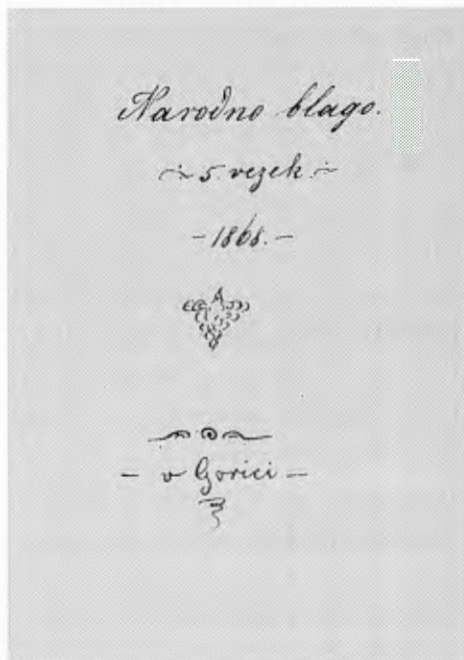 Narodno blago.
5. vezek.
- 1868. -
- v Gorici -